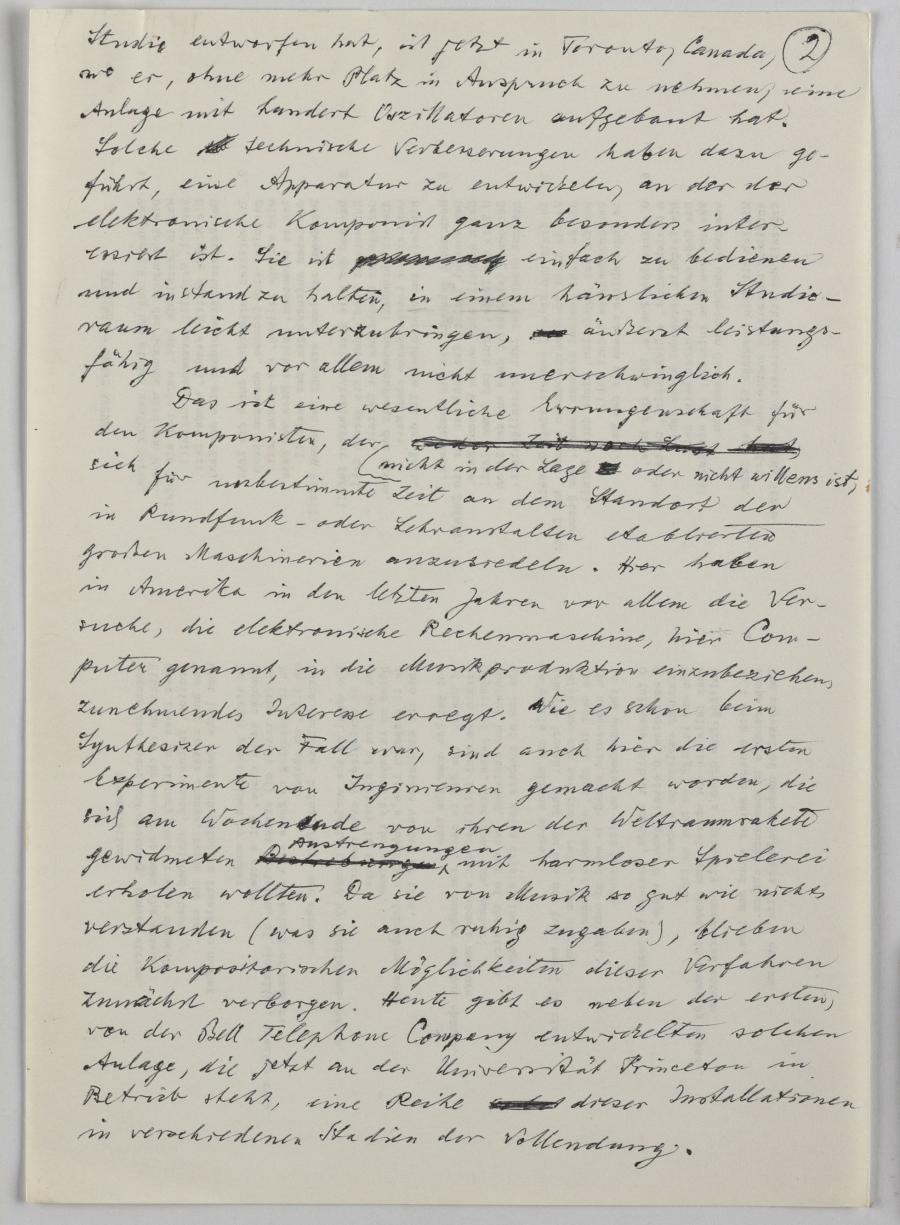 Studio entworfen hat, ist jetzt in Toronto, Canada, 2
wo er, ohne mehr Platz in Anspruch zu nehmen, eine
Anlage mit hundert Oszillatoren aufgebaut hat.
Solche technische Verbesserungen haben dazu ge-
führt, eine Apparatur zu entwickeln, an der der
elektronische Komponist ganz besonders inter-
essiert ist. Sie ist einfach zu bedienen
und instand zu halten, in einem häuslichen Studio-
raum leicht unterzubringen, äußerst leistungs-
fähig und vor allem nicht unerschwinglich.
Das ist eine wesentliche Errungenschaft für
den Komponisten, der weder Zeit noch Lust hat
(nicht in der Lage oder nicht willens ist,
sich für unbestimmte Zeit an dem Standort der
in Rundfunk- oder Lehranstalten etablierten
großen Maschinerien anzusiedeln. Hier haben
in Amerika in den letzten Jahren vor allem die Ver-
suche, die elektronische Rechenmaschine, hier Com-
puter genannt, in die Musikproduktion einzubeziehen,
zunehmendes Interesse erregt. Wie es schon beim
Synthesizer der Fall war, sind auch hier die ersten
Experimente von Ingenieuren gemacht worden, die
sich am Wochenende von ihren der Weltraumrakete
Anstrengungen
gewidmeten Bestrebungen mit harmloser Spielerei
erholen wollten. Da sie von Musik so gut wie nichts
verstanden (was sie auch ruhig zugaben), blieben
die kompositorischen Möglichkeiten dieser Verfahren
zunächst verborgen. Heute gibt es neben der ersten,
von der Bell Telephone Company entwickelten solchen
Anlage, die jetzt an der Universität Princeton in
Betrieb steht, eine Reihe dieser Installationen
in verschiedenen Stadien der Vollendung.